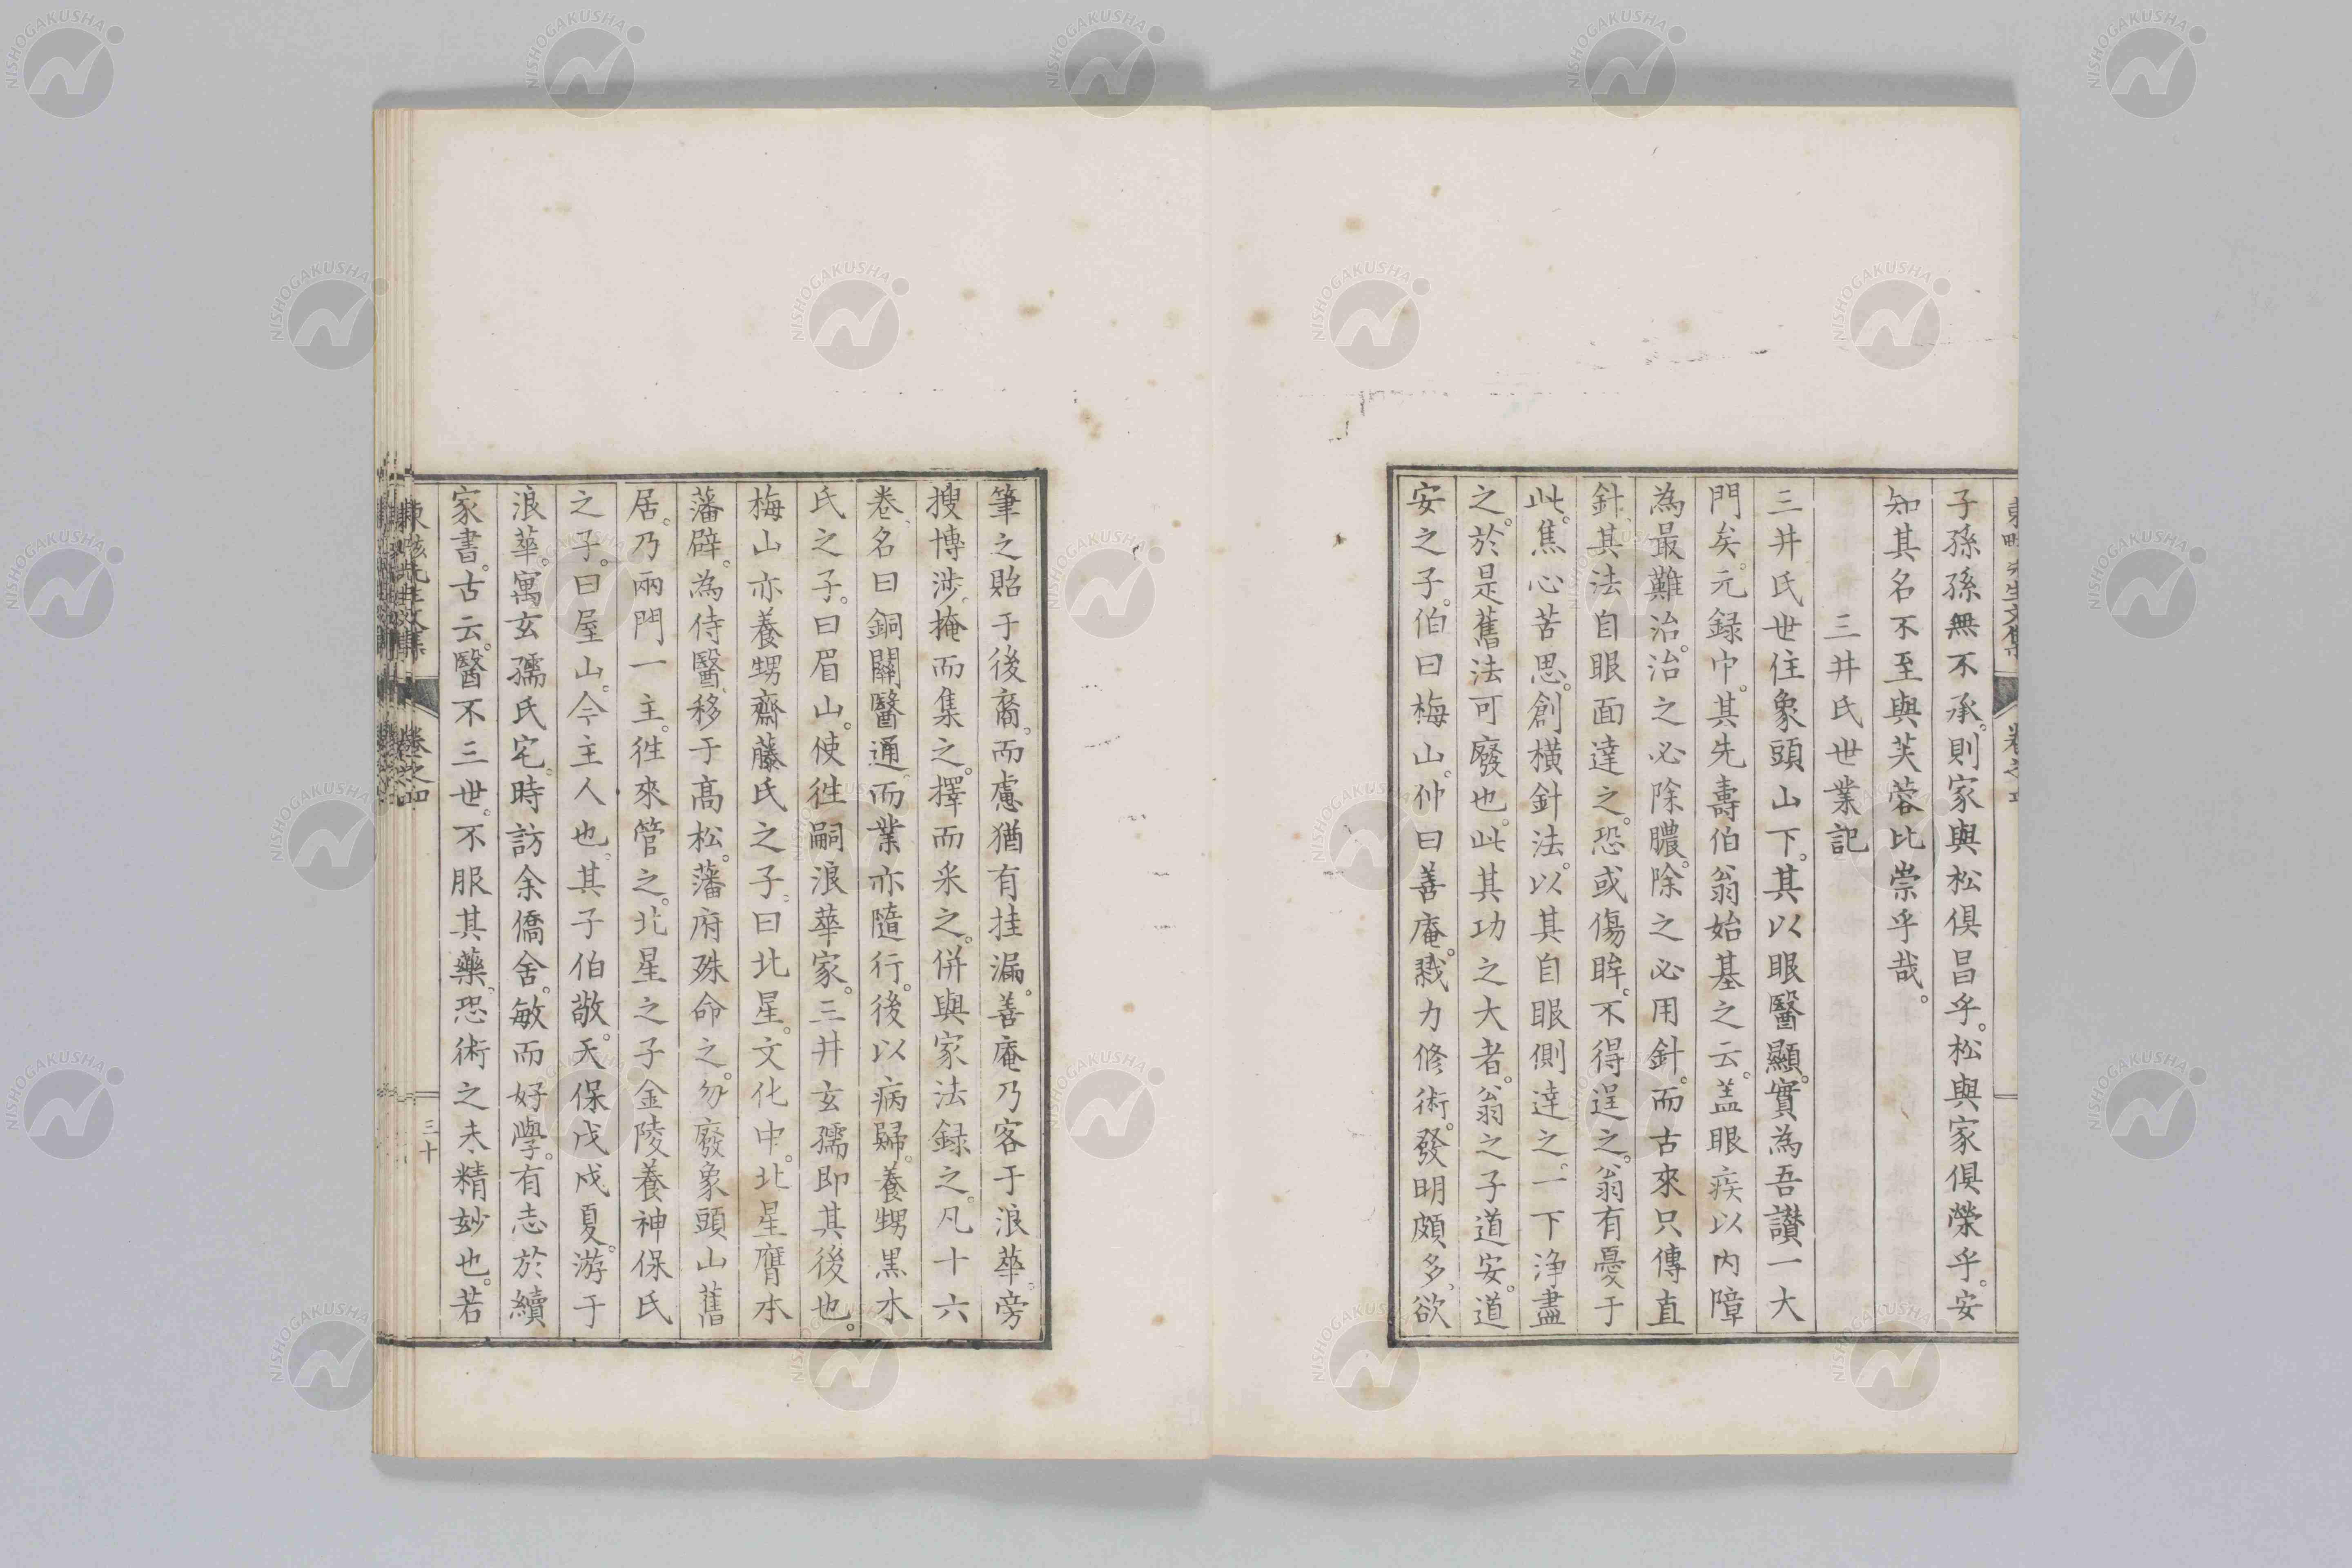 子孫孫無不承。則家與松俱昌乎。松與家俱榮乎。安
知其名不至與芙蓉比崇乎哉。
三井氏世業記
三井氏世住象頭山下。其以眼醫顯。實為吾讃一大
門矣。元録中。其先壽伯翁始基之云。盖眼疾以内障
為最難治。治之必除膿。除之必用針。而古來只傳直
針、其法自眼面達之。恐或傷眸。不得逞之。翁有憂于
此。焦心苦思。創橫針法。以其自眼側達之。一下淨盡
之。於是舊法可廢也。此其功之大者。翁之子道安。道
安之子。伯曰梅山。仲曰善庵。戮力修術。發明頗多、欲
筆之貽于後裔。而慮猶有挂漏。善庵乃客于浪華。旁
搜博涉、掩而集之。擇而采之。併與家法録之。凡十六
卷、名曰銅關醫通、而業亦隨行。後以病歸。養甥黒木
氏之子。曰眉山。使徃嗣浪華家。三井玄孺即其後也。
梅山亦養甥齋藤氏之子。曰北星。文化中。北星膺本
藩辟。為侍醫、移于髙松。藩府殊命之。勿廢象頭山舊
居。乃兩門一主。徃來管之。北星之子金陵養神保氏
之子。曰屋山。今主人也、其子伯敬。天保戊戌夏。游于
浪華。寓玄孺氏宅。時訪余僑舍。敏而好學。有志於續
家書。古云。醫不三世。不服其藥、恐術之未精妙也。若
卷之四
三十